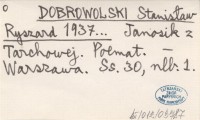 DOBROWOLSKI Stanisław
Ryszard 1937... Janosik z
Tarchowej. Poemat. –
Warszawa. Ss. 30, nlb 1.